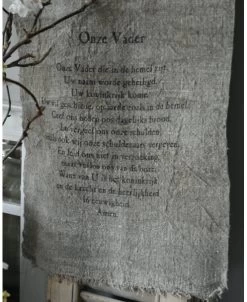 Onze Vader
Onze Vader die in de hemel zijt,
Uw naam worde geheiligd,
Uw koninkrijk kome,
Uw wil geschiede, op aarde zoals in de hemel.
Geef ons heden ons dagelijks brood,
En vergeef ons onze schulden,
zoals ook wij onze schuldenaars vergeven,
En leid ons niet in verzoeking,
maar verlos ons van de boze.
Want van U is het koninkrijk
en de kracht en de heerlijkheid
in eeuwigheid.
Amen.